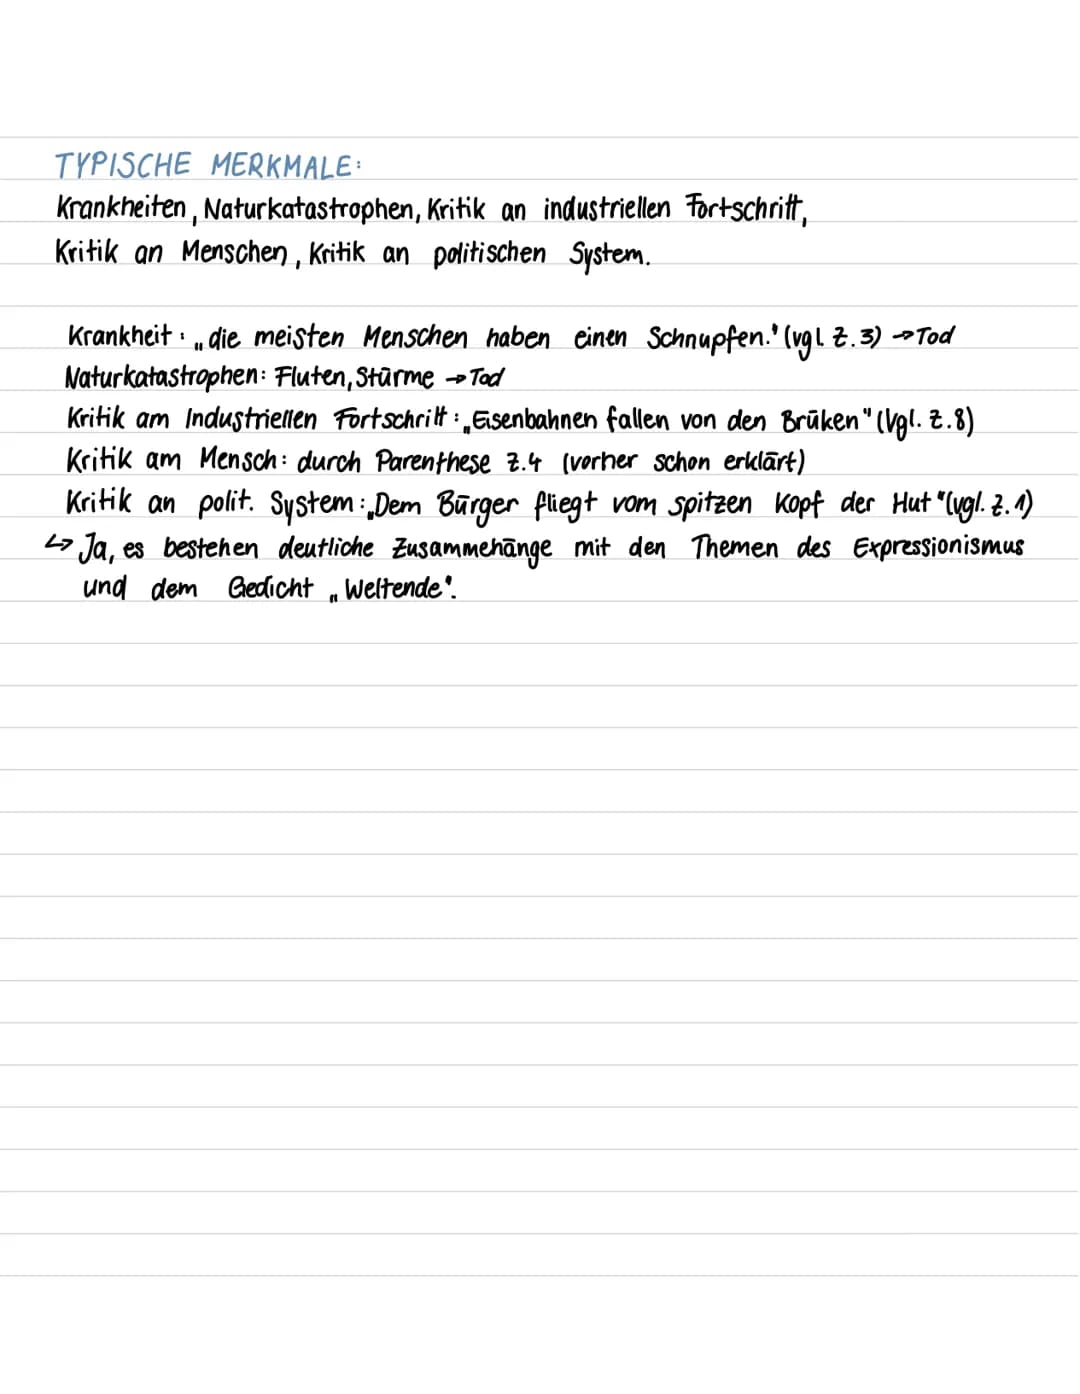 TYPISCHE MERKMALE:
Krankheiten, Naturkatastrophen, Kritik an industriellen Fortschritt,
Kritik an Menschen, Kritik an politischen System.
Krankheit: „die meisten Menschen haben einen Schnupfen." (vgl. Z.3) → Tod
Naturkatastrophen: Fluten, Stürme → Tod
Kritik am Industriellen Fortschritt: „Eisenbahnen fallen von den Brüken" (Vgl. Z.8)
Kritik am Mensch: durch Parenthese Z.4 (vorher schon erklärt)
Kritik an polit. System: „Dem Bürger fliegt vom spitzen Kopf der Hut" (vgl. Z.1)
↳ Ja, es bestehen deutliche Zusammehänge mit den Themen des Expressionismus
und dem Gedicht „Weltende".